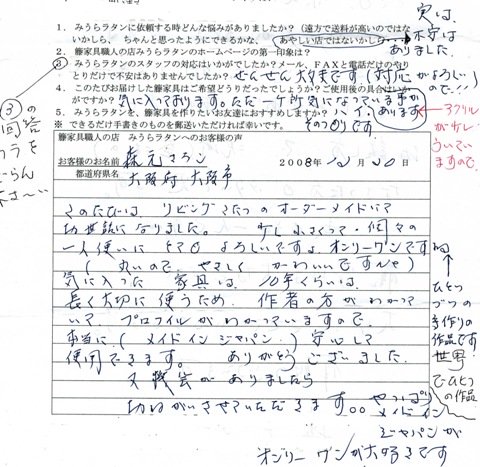 1. みうらラタンに依頼する時どんな悩みがありましたか？（遠方で送料が高いのではな
いかしら、ちゃんと、思うようにできるかな、あやしい店ではないかしら
実は、
不安は
ありました。
2. 籐家具職人の店みうらラタンのホームページの第一印象は？
③ みうらラタンのスタッフの対応はいかがでしたか？メール、FAXと電話だけのやり
とりだけで不安はありませんでしたか？ ぜんぜん大丈夫です（対応がよろしい
ので!!）
4. このたびお届けした籐家具はご希望どうりだったでしょうか？ご使用後の具合はいか
がですか？ 気に入っております。ただ一ヶ所気になっています
5. みうらラタンを、籐家具を作りたいお友達におすすめしますか？ ハイ、あります
そのつもりです
※ できるだけ手書きのものを郵送いただければ幸いです。
アクリル
が少し
ういてい
ますので。
③の
回答
籐家具職人の店 みうらラタンへのお客様の声
お客様のお名前
2008年12月20日
都道府県名 大阪府 大阪市
このたびは、リビングこたつのオーダーメイドにて
お世話になりました。少し小さくって・個々の
一人使いにとてもよろしいですよ。オンリーワンですね
（丸いので、やさしく かわいいですんや）
気に入った 家具は、10年くらいは、
長く大切に使うため、作者の方がわかって
いて、プロフィルがわかっていますので、
本当に（メイドインジャパン）安心して
使用できます。ありがとうございました。
又機会がありましたら
お願いさせていただきます。。やっぱり
メイドイン
ジャパンが
オンリーワンが大好きです
ひとつ
づつの
手作りの
作品です
世界
でひとつの作品